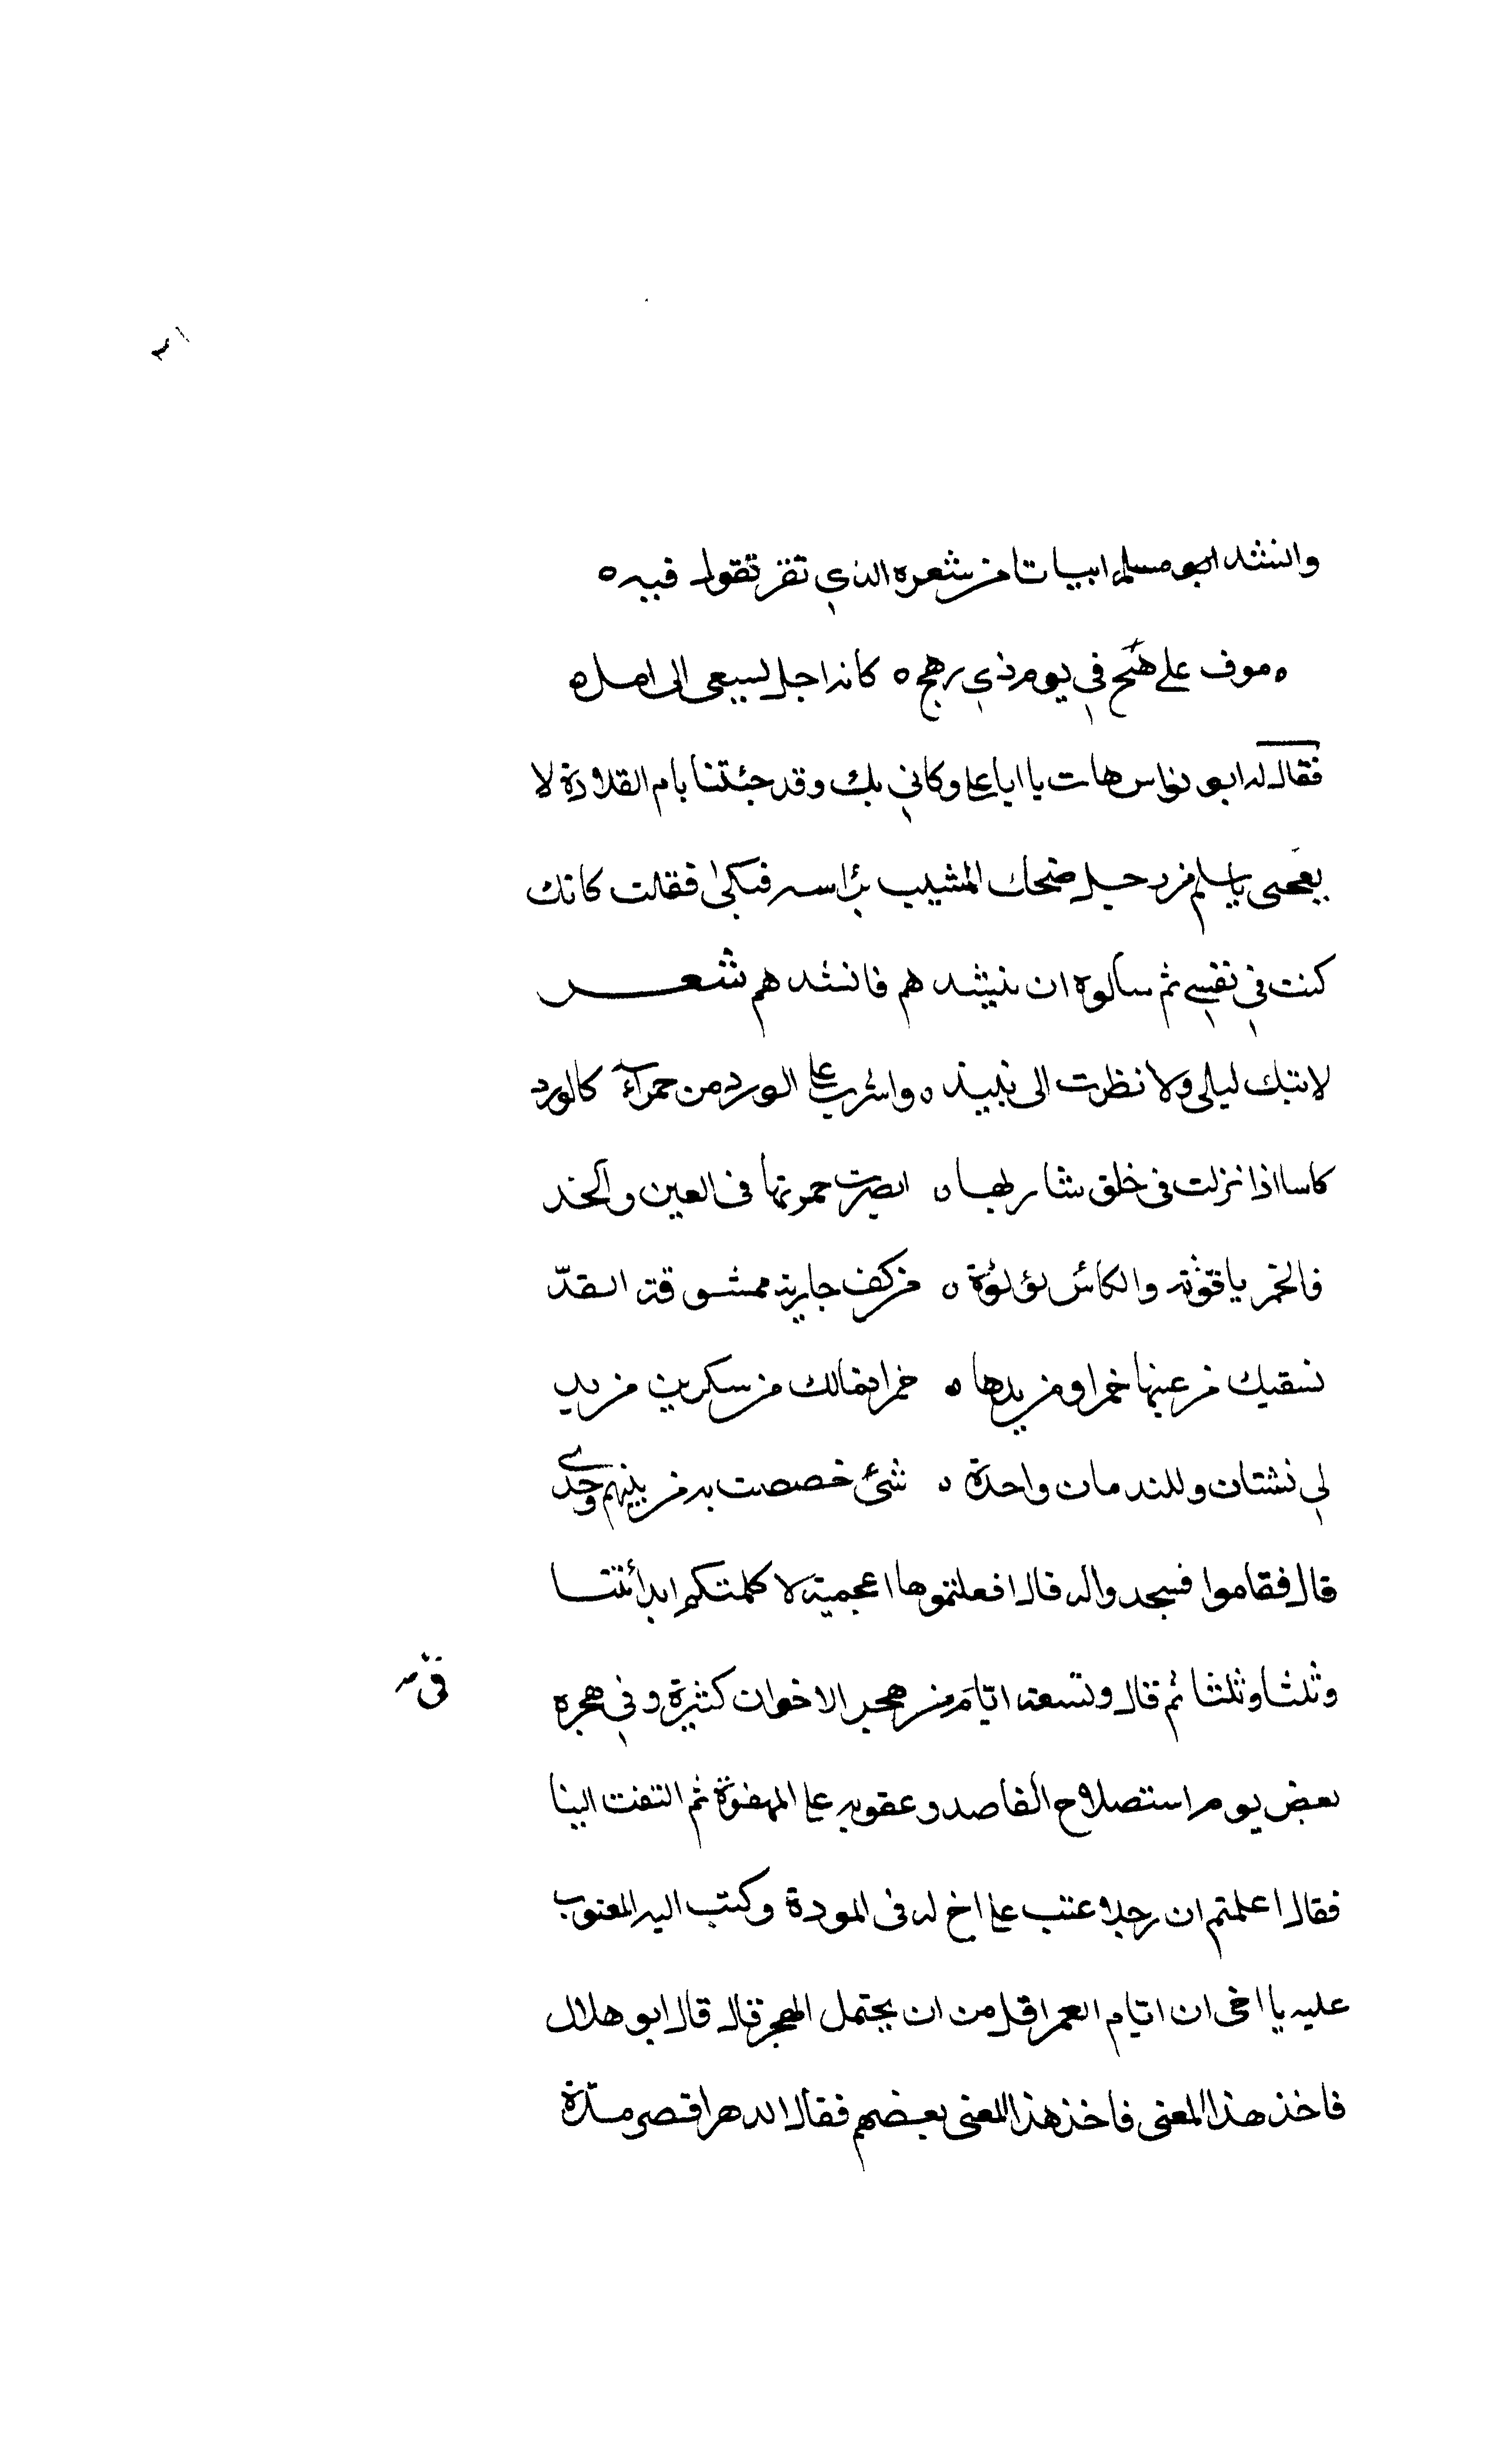 وانشد ابو مسلم ابياتا من شعره الذي تقر تقول فيه ه
ه موف على مهج في يوم ذي رهج ه كانه اجل يسعى الى امل ه
فقال له ابو نواس هات يا ابا على وكاني بك وقد جئتنا بام القلادة لا
تعجبى يا سلم من رجل ضحك المشيب برٔاسه فبكى فقلت كانك
كنت في نفسي ثم سألوه ان ينشدهم فانشدهم شعر
لا تبك ليلى ولا نظرت الى نبيذ ه واشرب على الورد من حمرآء كالورد
كاسا اذا نزلت فى خلق شاربها ه ابصرت حمرتها فى العين والخد
فالخمر ياقوتة والكأس لؤلؤة ه من كف جارية ممشوقة القدّ
تسقيك من عينها خمرا ومن يدها ه خمرا فمالك من سكرين من بد
لي نشتان وللندمان واحدة ه شئ خصصت به من بينهم وحدي
قال فقاموا فسجدوا له قال افعلتموها اعجمية لا كلمتكم ابدأ ثلثا
وثلثا وثلثا ثم قال وتسعة ايّام من هجر الاخوان كثيرة وفي هجره
بعض يوم استصلاح الفاصد وعقوبه على الهفوة ثم التفت الينا
فقال اعلمتم ان رجلا عتب على اخ له فى المودة وكتب اليه المعتوب
عليه يا اخى ان ايّام العمر اقل من ان يحتمل الهجر قال قال ابو هلال
فاخذ هذا المعنى فاخذ هذا المعنى بعضهم فقال الدهر اقصر مدّة